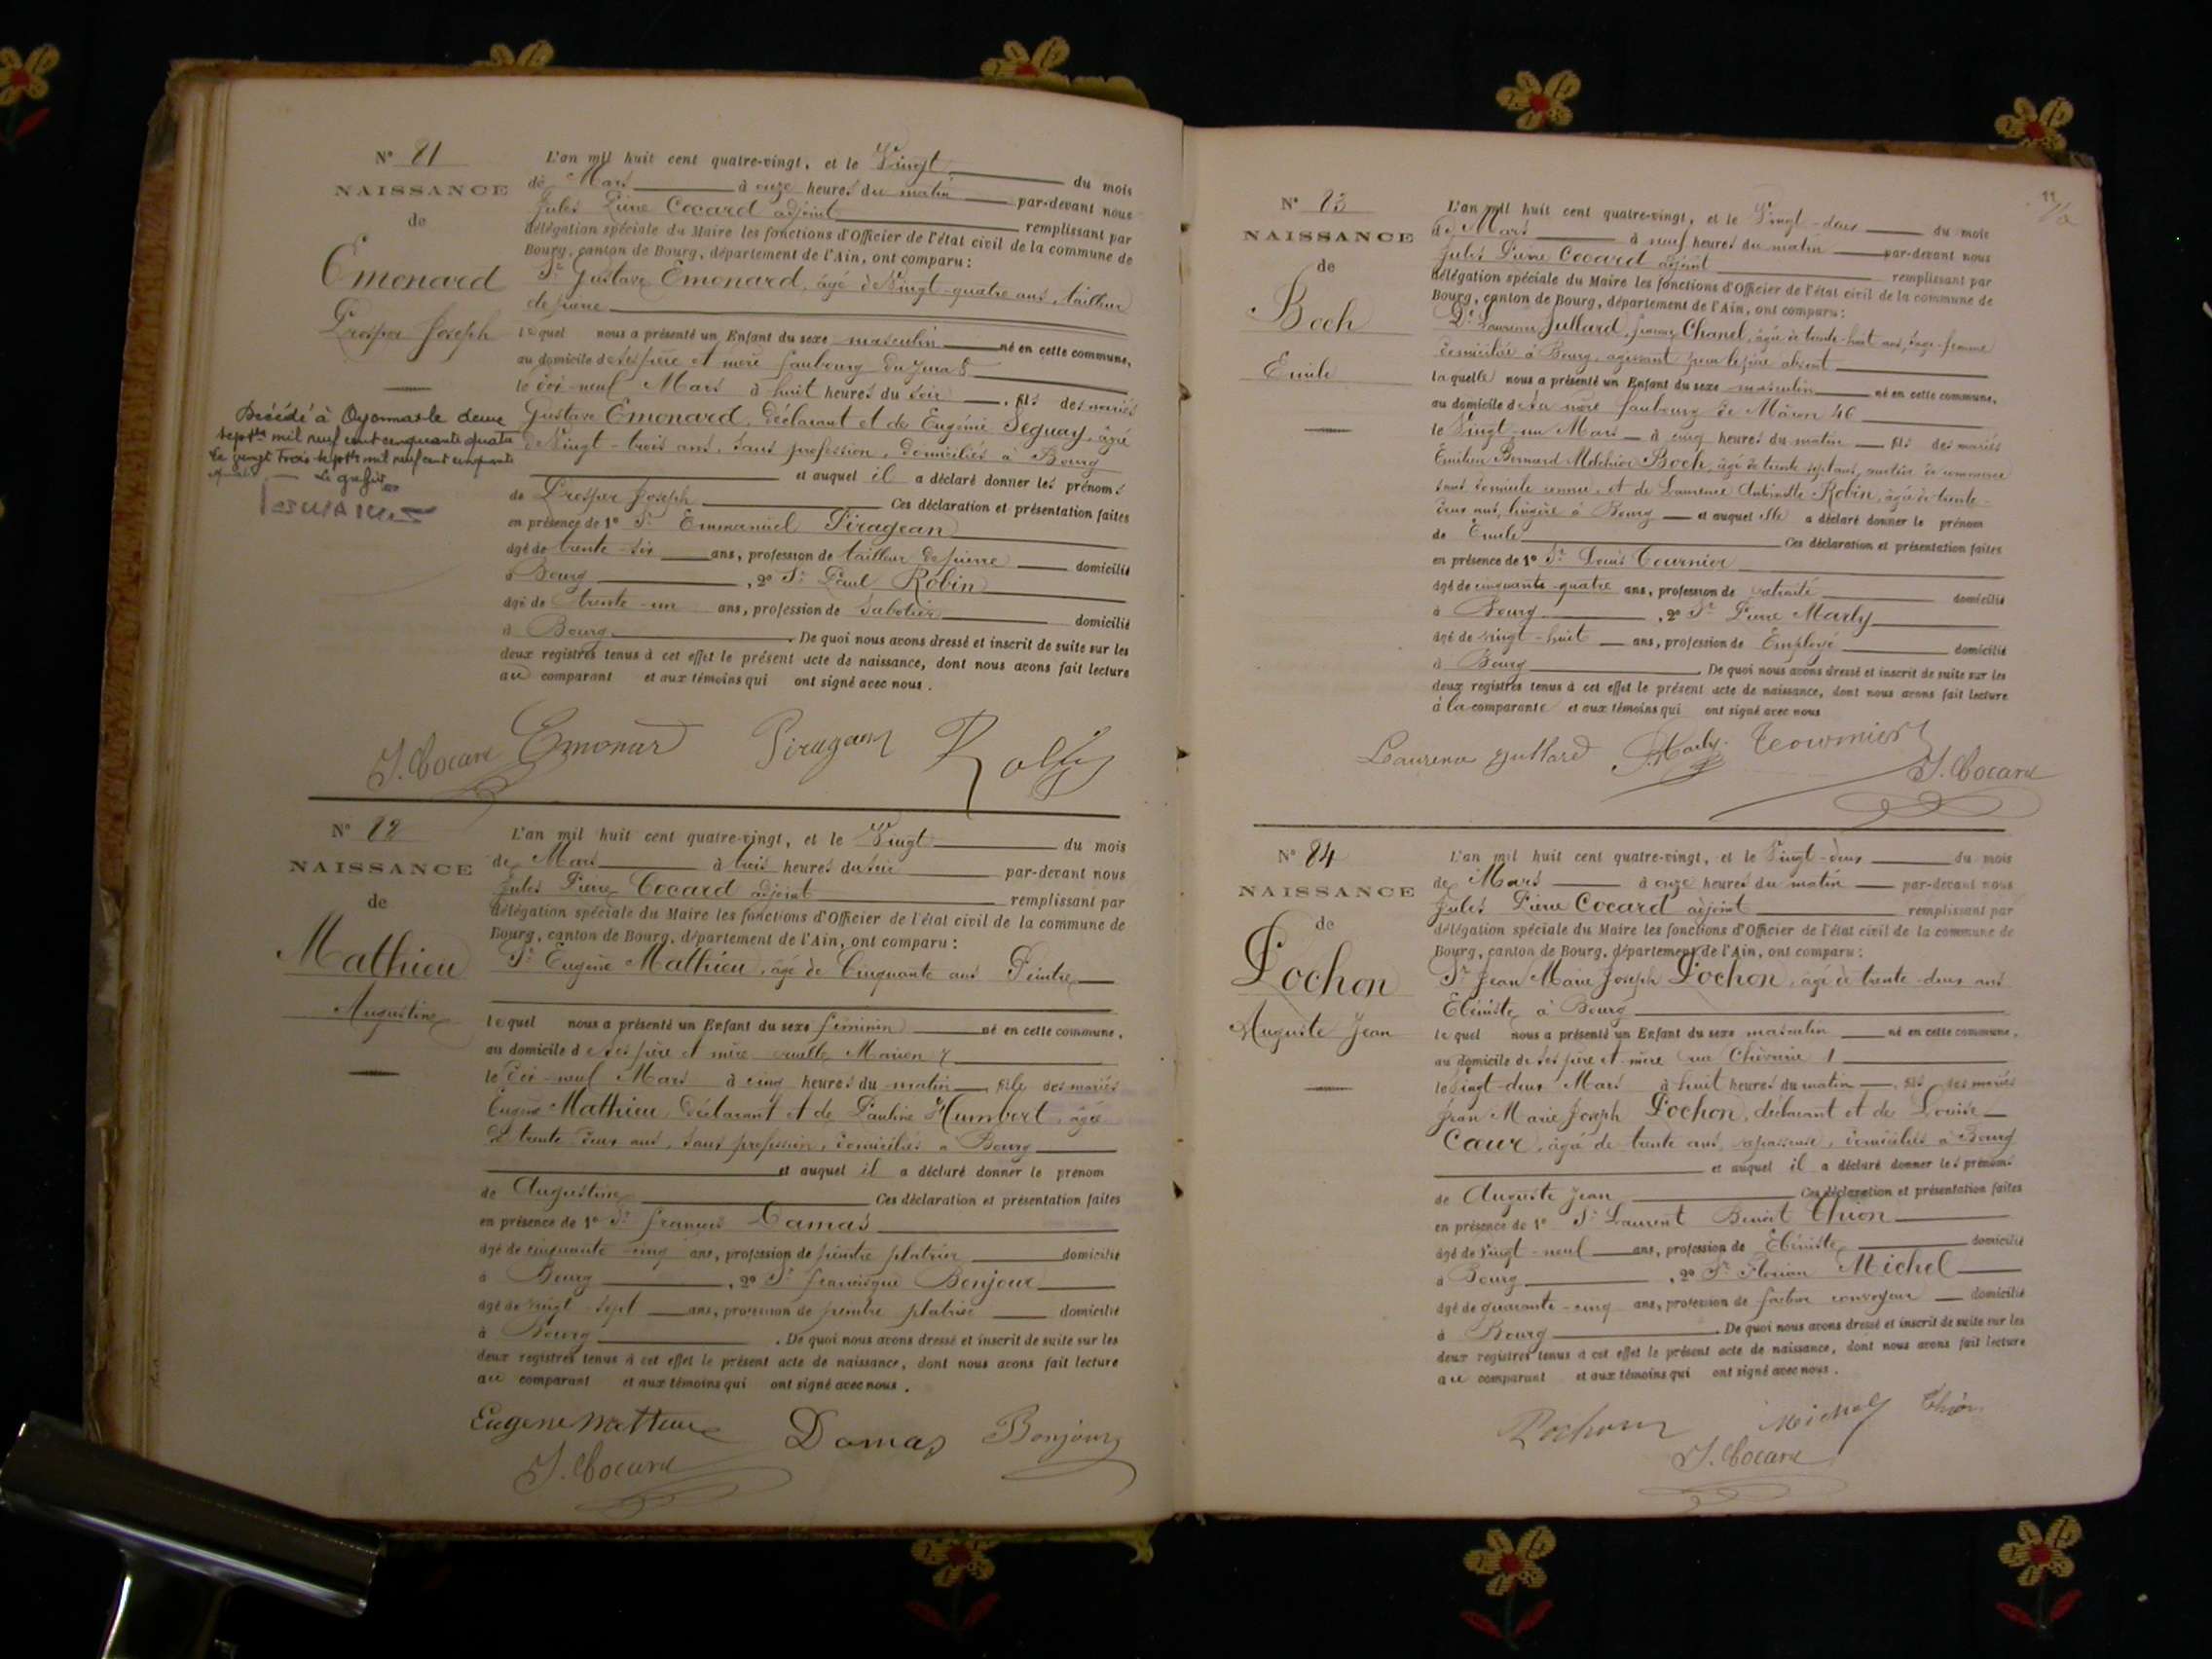 N° 81
NAISSANCE
de
Emonard
Prosper Joseph
Décédé à Oyonnax le deux
septbre mil neuf cent cinquante quatre
Le vingt trois septbre mil neuf cent cinquante
Le greffier
L'an mil huit cent quatre-vingt, et le Vingt du mois
de Mars à onze heures du matin par-devant nous
Jules Pierre Cocard adjoint remplissant par
délégation spéciale du Maire les fonctions d'Officier de l'état civil de la commune de
Bourg, canton de Bourg, département de l'Ain, ont comparu :
Sr Gustave Emonard, âgé de Vingt-quatre ans, tailleur
de pierre
lequel nous a présenté un Enfant du sexe masculin né en cette commune,
au domicile de ses père et mère faubourg du Jura 8
le dix-neuf Mars à huit heures du soir, fils des mariés
Gustave Emonard, déclarant et de Eugénie Seguay, âgée
de Vingt-trois ans, sans profession, domiciliés à Bourg
et auquel il a déclaré donner les prénoms
de Prosper Joseph Ces déclaration et présentation faites
en présence de 1° Sr Emmanuel Piragean
âgé de trente-six ans, profession de tailleur de pierre domicilié
à Bourg, 2° Sr Paul Robin
âgé de trente-un ans, profession de sabotier domicilié
à Bourg. De quoi nous avons dressé et inscrit de suite sur les
deux registres tenus à cet effet le présent acte de naissance, dont nous avons fait lecture
au comparant et aux témoins qui ont signé avec nous.
J. Cocard Emonard Piragean Robin
N° 82
NAISSANCE
de
Mathieu
Augustine
L'an mil huit cent quatre-vingt, et le Vingt du mois
de Mars à trois heures du soir par-devant nous
Jules Pierre Cocard adjoint remplissant par
délégation spéciale du Maire les fonctions d'Officier de l'état civil de la commune de
Bourg, canton de Bourg, département de l'Ain, ont comparu :
Sr Eugène Mathieu, âgé de Cinquante ans Peintre
lequel nous a présenté un Enfant du sexe féminin né en cette commune,
au domicile de ses père et mère ruelle Marion 7
le dix-neuf Mars à cinq heures du matin, fille des mariés
Eugène Mathieu, déclarant et de Pauline Humbert, âgée
de trente-deux ans, sans profession, domiciliés à Bourg
et auquel il a déclaré donner le prénom
de Augustine Ces déclaration et présentation faites
en présence de 1° Sr François Damas
âgé de cinquante-cinq ans, profession de peintre plâtrier domicilié
à Bourg, 2° Sr Francisque Bonjour
âgé de vingt-sept ans, profession de peintre plâtrier domicilié
à Bourg. De quoi nous avons dressé et inscrit de suite sur les
deux registres tenus à cet effet le présent acte de naissance, dont nous avons fait lecture
au comparant et aux témoins qui ont signé avec nous.
Eugene Mattieu Damas Bonjour
J. Cocard
N° 83
NAISSANCE
de
Boch
Emile
L'an mil huit cent quatre-vingt, et le Vingt-deux du mois
de Mars à neuf heures du matin par-devant nous
Jules Pierre Cocard adjoint remplissant par
délégation spéciale du Maire les fonctions d'Officier de l'état civil de la commune de
Bourg, canton de Bourg, département de l'Ain, ont comparu :
De Laurence Jullard, femme Chanel, âgée de trente-huit ans, sage-femme
domiciliée à Bourg, agissant pour le père absent
laquelle nous a présenté un Enfant du sexe masculin né en cette commune,
au domicile de sa mère faubourg de Mâcon 46
le Vingt-un Mars à cinq heures du matin, fils des mariés
Emilien Bernard Melchior Boch, âgé de trente-sept ans, de commerce
sans domicile connu, et de Laurence Antoinette Robin, âgée de trente-
deux ans, lingère à Bourg et auquel elle a déclaré donner le prénom
de Emile Ces déclaration et présentation faites
en présence de 1° Sr Louis Tournier
âgé de cinquante-quatre ans, profession de retraité domicilié
à Bourg, 2° Sr Pierre Marly
âgé de vingt-huit ans, profession de Employé domicilié
à Bourg. De quoi nous avons dressé et inscrit de suite sur les
deux registres tenus à cet effet le présent acte de naissance, dont nous avons fait lecture
à la comparante et aux témoins qui ont signé avec nous
Laurence Jullard Marly Tournier
J. Cocard
N° 84
NAISSANCE
de
Pochon
Auguste Jean
L'an mil huit cent quatre-vingt, et le Vingt-deux du mois
de Mars à onze heures du matin par-devant nous
Jules Pierre Cocard adjoint remplissant par
délégation spéciale du Maire les fonctions d'Officier de l'état civil de la commune de
Bourg, canton de Bourg, département de l'Ain, ont comparu :
Sr Jean Marie Joseph Pochon, âgé de trente-deux ans
Ebéniste à Bourg
lequel nous a présenté un Enfant du sexe masculin né en cette commune,
au domicile de ses père et mère rue Chèvrerie 1
le Vingt-deux Mars à huit heures du matin, fils des mariés
Jean Marie Joseph Pochon, déclarant et de Louise
Cœur, âgée de trente ans, repasseuse, domiciliés à Bourg
et auquel il a déclaré donner les prénoms
de Auguste Jean Ces déclaration et présentation faites
en présence de 1° Sr Laurent Benoit Thion
âgé de vingt-neuf ans, profession de Ebéniste domicilié
à Bourg, 2° Sr Florian Michel
âgé de quarante-cinq ans, profession de facteur convoyeur domicilié
à Bourg. De quoi nous avons dressé et inscrit de suite sur les
deux registres tenus à cet effet le présent acte de naissance, dont nous avons fait lecture
au comparant et aux témoins qui ont signé avec nous.
Pochon Michel Thion
J. Cocard